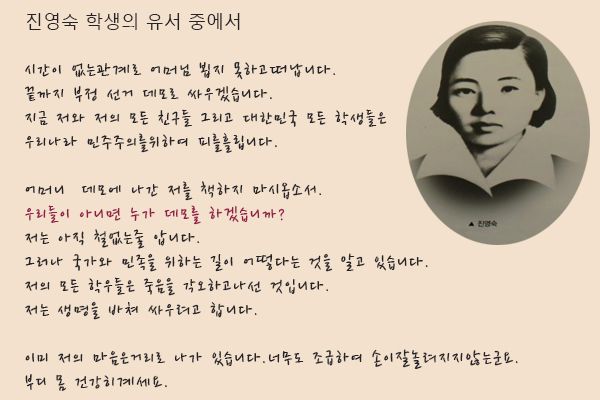 진영숙 학생의 유서 중에서
시간이 없는관계로 어머님 뵙지 못하고떠납니다.
끝까지 부정 선거 데모로 싸우겠습니다.
지금 저와 저의 모든 친구들 그리고 대한민국 모든 학생들은
우리나라 민주주의를위하여 피를흘립니다.
어머니 데모에 나간 저를 책하지 마시옵소서.
우리들이 아니면 누가 데모를 하겠습니까?
저는 아직 철없는줄 압니다.
그러나 국가와 민족을 위하는 길이 어떻다는 것을 알고 있습니다.
저의 모든 학우들은 죽음을 각오하고나선 것입니다.
저는 생명을 바쳐 싸우려고 합니다.
이미 저의 마음은거리로 나가 있습니다.너무도 조급하여 손이잘놀려지지않는군요.
부디 몸 건강히계세요.
▲ 진영숙